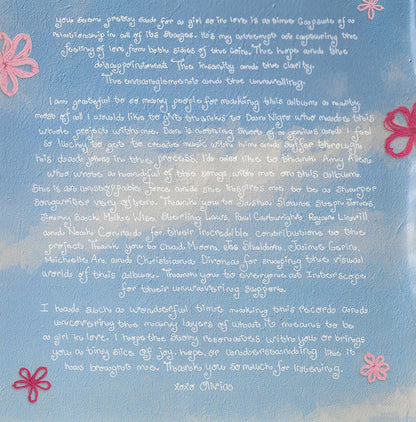 you seem pretty sad for a girl so in love is a time capsule of a
relationship in all of its stages. It's my attempt at capturing the
feeling of love from both sides of the coin. The hope and the
disappointment. The insanity and the clarity.
The entanglement and the unravelling.
I am grateful to so many people for making this album a reality.
most of all I would like to give thanks to Dan Nigro who made this
whole project with me. Dan is nothing short of a genius and I feel
so lucky to get to create music with him and suffer through
his dad jokes in the process. I'd also like to thank Amy Allen
who wrote a handful of the songs with me on this album.
She is an unstoppable force and she inspires me to be a sharper
songwriter every day. Thank you to
Jimmy Sterling Laws, Paul Cartwright,
and Noah Conrad for their incredible contributions to the
project. Thank you to Chad Moore, Jaime Gerin,
Michelle An, and Christiana Divona for shaping the visual
world of this album. Thank you to everyone at Interscope
for their unwavering support.
I had such a wonderful time making this record and
uncovering the many layers of what it means to be
a girl in love. I hope the story resonates with you or brings
you a tiny slice of joy, hope, or understanding like it
has brought me. Thank you so much for listening.
xoxo Olivia